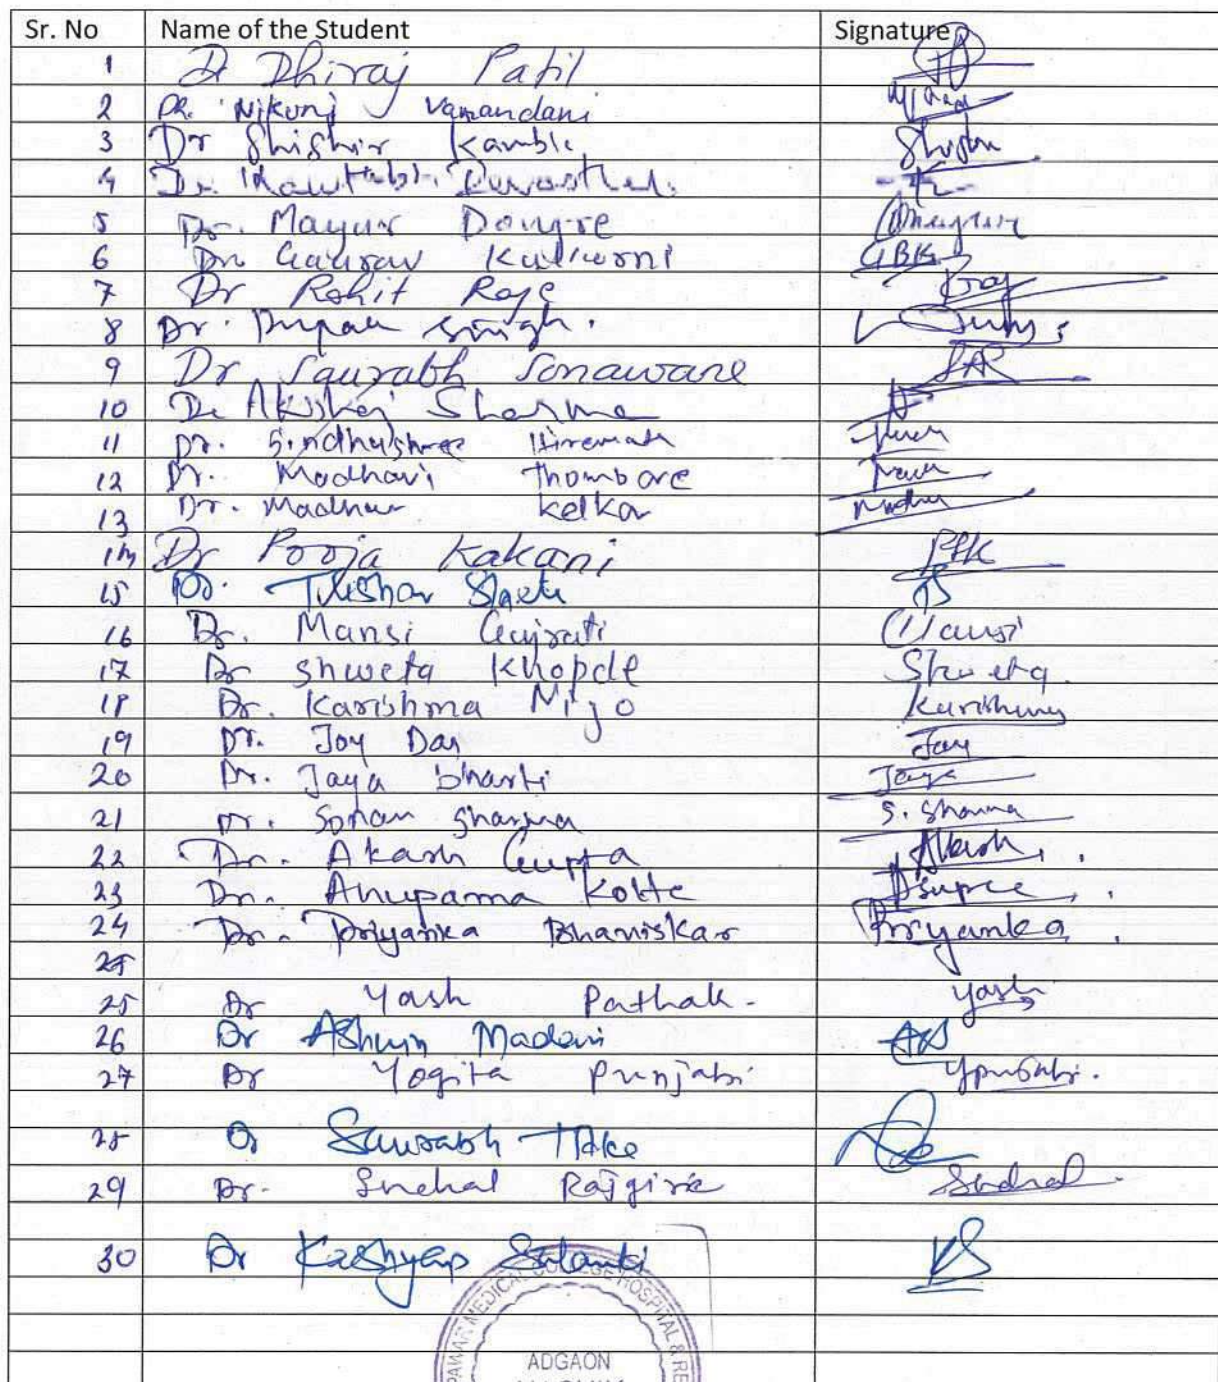 Sr. No Name of the Student Signature
1 Dr Dhiraj Patil
2 Dr. Nikunj Vamandani
3 Dr Shishir Kamble Shishir
4 Dr.
5 Dr. Mayur Dongre
6 Dr. Gaurav Kulkarni GBK
7 Dr Rohit Roge
8 Dr. Singh.
9 Dr Saurabh Sonaware SAR
10 Dr Akshay Sharma
11 Dr. Sindhushree Hiremath
12 Dr. Madhavi Thombare
13 Dr. Madhur Kelkar Madhur
14 Dr Pooja Kakani PPK
15 Dr. Tushar Shete
16 Dr. Mansi Gujrati Mansi
17 Dr Shweta Khopde Shweta
18 Dr. Karishma Mijo Karishma
19 Dr. Joy Das Joy
20 Dr. Jaya Bharti Jaya
21 Dr. Sonam Sharma S. Sharma
22 Dr. Akash Gupta Akash
23 Dr. Anupama Kolte
24 Dr. Priyanka Bhaviskar Priyanka
25 Dr Yash Pathak - Yash
26 Dr Ashwin Madani
27 Dr Yogita Punjabi YPunjabi.
28 Dr Saurabh Take
29 Dr. Snehal Rajgire Snehal
30 Dr Kashyap Solanki KS
PAWAR MEDICAL COLLEGE HOSPITAL & RE
ADGAON